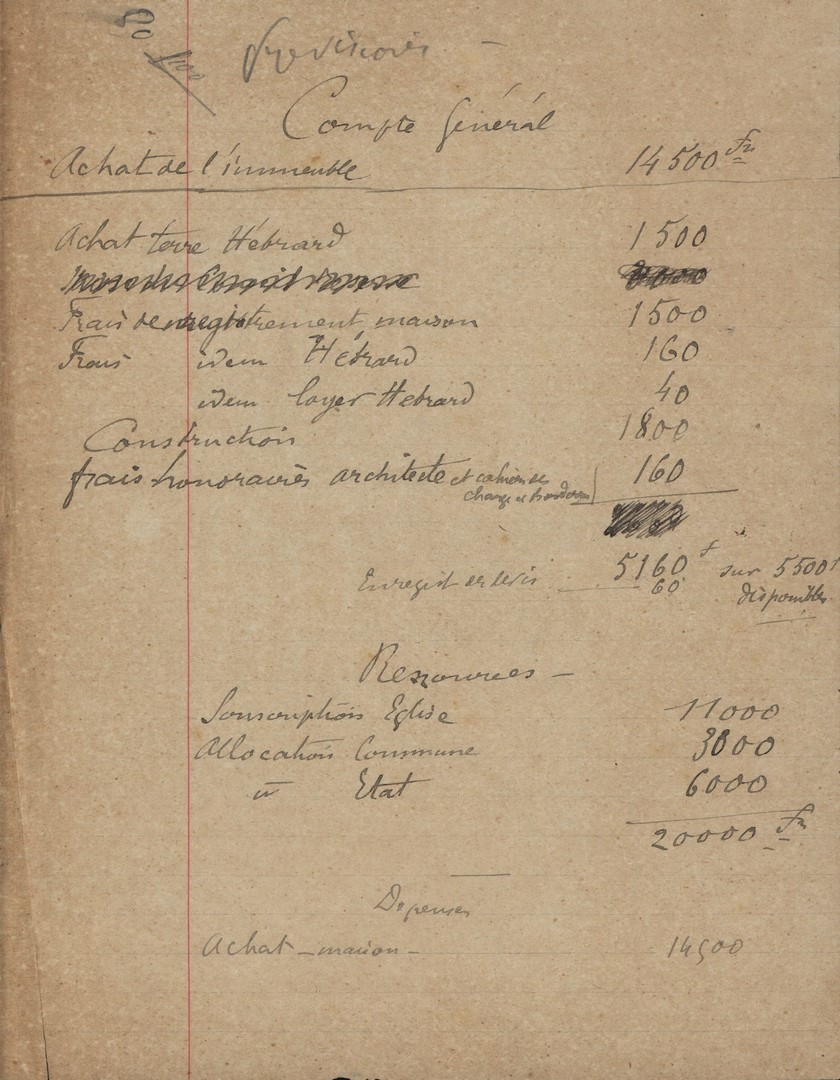 Compte Général
Achat de l'immeuble 14500 Frs
Achat terre Hébrard 1500
Frais d'enregistrement maison 1500
Frais idem Hébrard 160
idem loyer Hebrard 40
Construction 1800
frais honoraires architecte et cahier des 160
charges
5160 f sur 5500 f
Enregist devis 60 disponibles
Ressources —
Souscriptions Eglise 11000
Allocation Commune 3000
id Etat 6000
20000 Frs
Depenses
Achat - maison - 14500